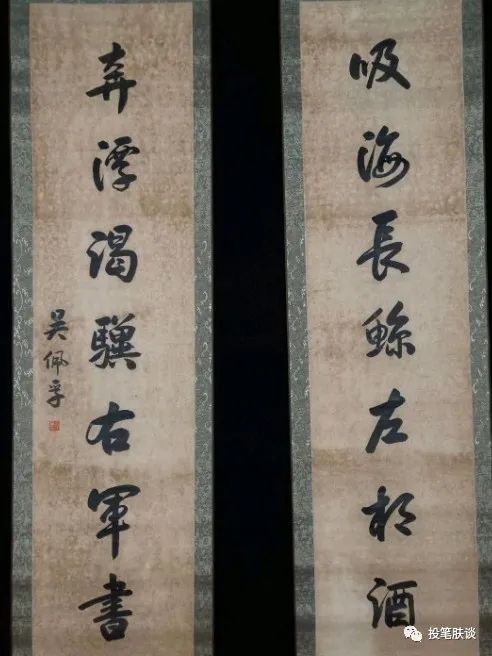 吸海長鯨左相酒
奔潭渴驥右軍書
吳佩孚
投笔肤谈